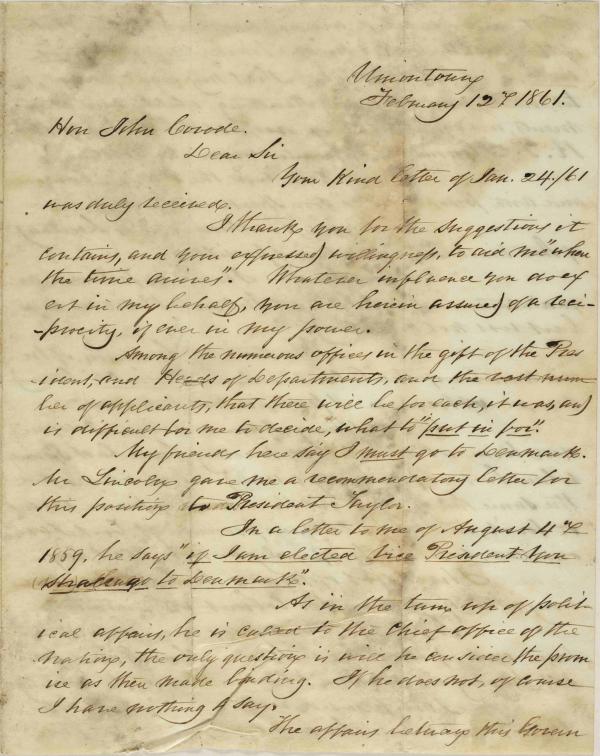 Uniontown
February 12th 1861.
Hon John Covode.
Dear Sir
Your Kind letter of Jan. 24./61
was duly received.
I thank you for the suggestions it
contains, and your expressed willingness, to aid me "when
the time arrives". Whatever influence you do ex
ert in my behalf, you are herein assured of a reci-
-procity, if ever in my power.
Among the numerous offices in the gift of the Pres
ident, and Heads of Departments, and the vast num
ber of applicants, that there will be for each, it was, and
is difficult for me to decide, what to "put in for".
My friends here say I must go to Denmark.
Mr Lincoln gave me a recommendatory letter for
this position to President Taylor.
In a letter to me of August 4th
1859, he says "if I am elected Vice President you
shall go to Denmark".
As in the turn up of polit-
ical affairs, he is called to the chief office of the
nation, the only question is will he consider the prom
ise as then made binding. If he does not, of course
I have nothing to say.
The affairs between this Govern